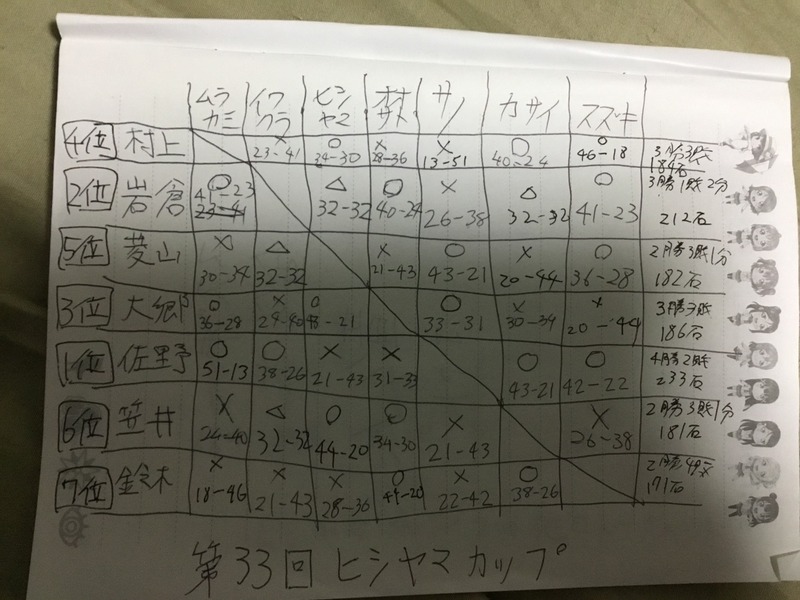 ムラカミ イワクラ ヒシヤマ オオサト サノ カサイ スズキ
4位 村上 × 23-41 ○ 34-30 × 28-36 × 13-51 ○ 40-24 ○ 46-18 3勝3敗 184石
2位 岩倉 ○ 41-23 △ 32-32 ○ 40-24 × 26-38 △ 32-32 ○ 41-23 3勝1敗2分 212石
5位 菱山 × 30-34 △ 32-32 × 21-43 ○ 43-21 × 20-44 ○ 36-28 2勝3敗1分 182石
3位 大郷 ○ 36-28 × 24-40 ○ 43-21 ○ 33-31 × 30-34 × 20-44 3勝3敗 186石
1位 佐野 ○ 51-13 ○ 38-26 × 21-43 × 31-33 ○ 43-21 ○ 42-22 4勝2敗 233石
6位 笠井 × 24-40 △ 32-32 ○ 44-20 ○ 34-30 × 21-43 × 26-38 2勝3敗1分 181石
7位 鈴木 × 18-46 × 21-43 × 28-36 ○ 44-20 × 22-42 ○ 38-26 2勝4敗 171石
第33回 ヒシヤマカップ